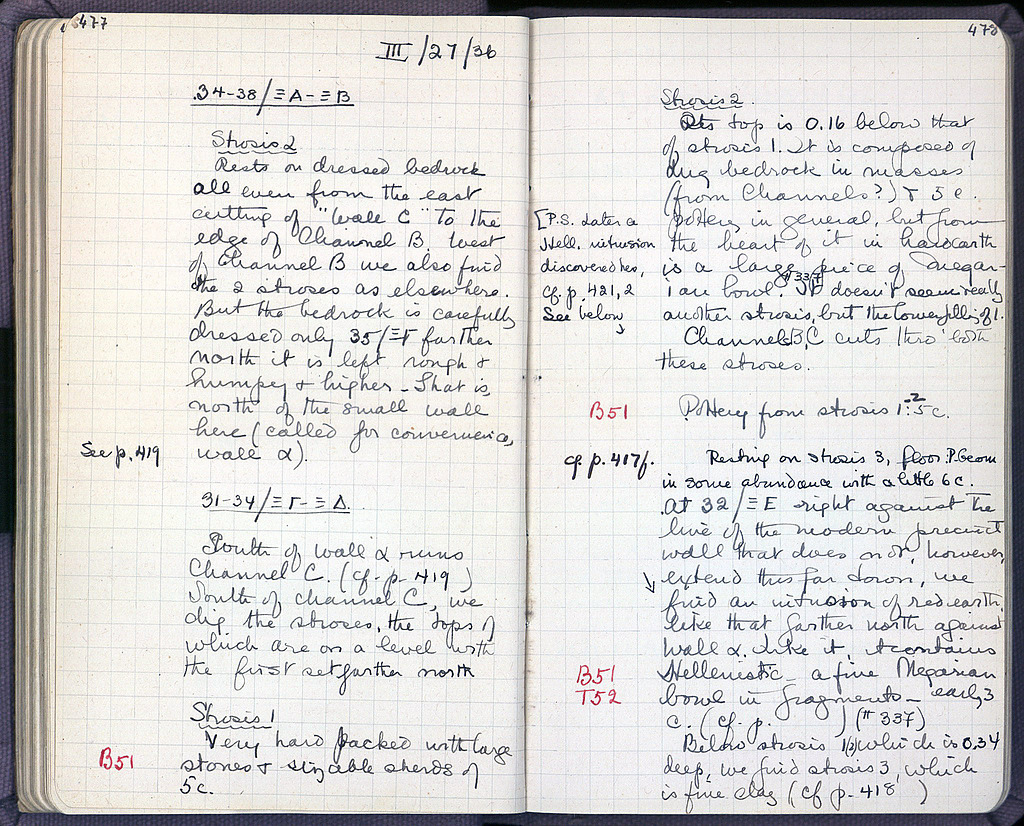 477
III/27/36
.34-38/ΞA-ΞB
Strosis 2
Rests on dressed bedrock
all even from the east
cutting of "Wall C" to the
edge of Channel B. West
of Channel B we also find
the 2 stroses as elsewhere.
But the bedrock is carefully
dressed only 35/ΞΓ farther
north it is left rough &
humpey & higher - That is,
north of the small wall
here (called for convenience,
See p. 419
wall α).
31-34/ΞΓ-ΞΔ
South of wall α runs
Channel C. (cf. p. 419)
South of channel C, we
dig the stroses, the tops of
which are on a level with
the first set farther north
Strosis 1
Very hard packed with large
B51
stones & sizable sherds of
5c.
478
Strosis 2.
Its top is 0.16 below that
of strosis 1. It is composed of
dug bedrock in masses
(from Channels?) & 5c.
pottery in general, but from
the heart of it in hard earth
is a large piece of Megar-
#337
ian bowl. It doesn't seem really
another strosis, but the lower filling of 1.
[P.S. Later a
Hell. intrusion
discovered here,
cf. p. 421,2
See below
Channels B, C cuts thro' both
these stroses.
B51
Pottery from strosis 1-2: 5c.
cf. p. 417f.
Resting on strosis 3, floor. P. Geom
in some abundance with a little 6c.
At 32/ΞE right against the
line of the modern precinct
wall that does not, however,
extend this far down, we
find an intrusion of red earth,
like that farther north against
wall α. Like it, it contains
B51
T52
Hellenistic - a fine Megarian
bowl in fragments - early 3
c. (cf. p. ) (#337)
Below strosis 1/2 which is 0.34
deep, we find strosis 3, which
is fine clay (cf p. 418 )